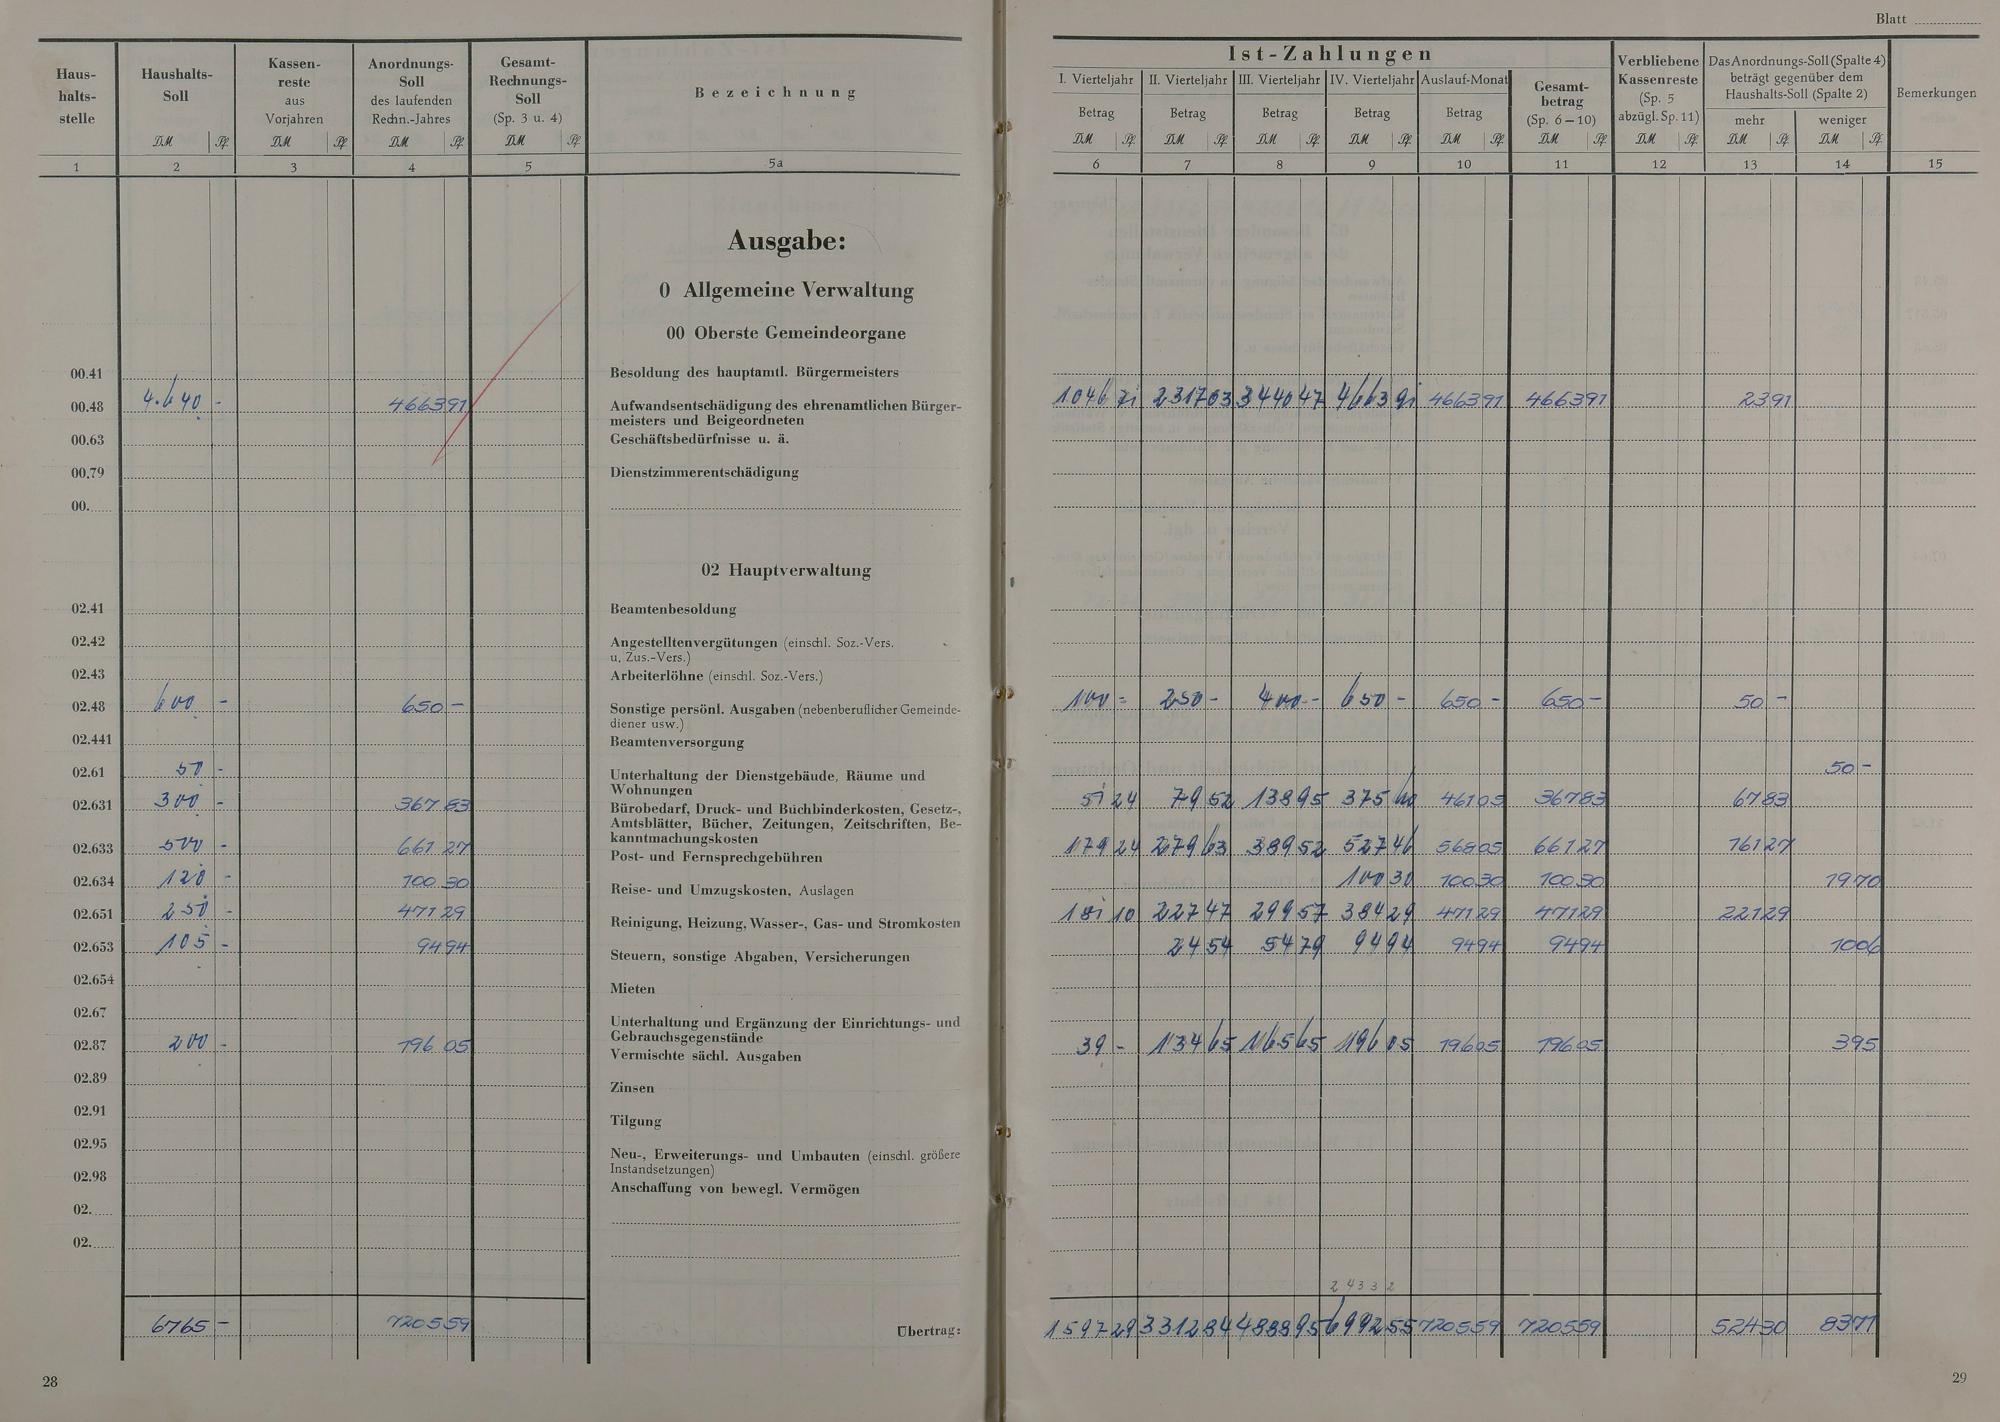 Blatt
Haus-
halts-
stelle
Haushalts-
Soll
DM Pf.
Kassen-
reste
aus
Vorjahren
DM Pf.
Anordnungs-
Soll
des laufenden
Rechn.-Jahres
DM Pf.
Gesamt-
Rechnungs-
Soll
(Sp. 3 u. 4)
DM Pf.
Bezeichnung
Ist-Zahlungen
I. Vierteljahr
Betrag
DM Pf.
II. Vierteljahr
Betrag
DM Pf.
III. Vierteljahr
Betrag
DM Pf.
IV. Vierteljahr
Betrag
DM Pf.
Auslauf-Monat
Betrag
DM Pf.
Gesamt-
betrag
(Sp. 6–10)
DM Pf.
Verbliebene
Kassenreste
(Sp. 5
abzügl. Sp. 11)
DM Pf.
Das Anordnungs-Soll (Spalte 4)
beträgt gegenüber dem
Haushalts-Soll (Spalte 2)
mehr
DM Pf.
weniger
DM Pf.
Bemerkungen
1 2 3 4 5 5a 6 7 8 9 10 11 12 13 14 15
Ausgabe:
0 Allgemeine Verwaltung
00 Oberste Gemeindeorgane
00.41 Besoldung des hauptamtl. Bürgermeisters
00.48 4.640 - 4663 91 Aufwandsentschädigung des ehrenamtlichen Bürger- 1046 71 2317 03 3440 47 4663 91 4663 91 4663 91 23 91
meisters und Beigeordneten
00.63 Geschäftsbedürfnisse u. ä.
00.79 Dienstzimmerentschädigung
00.
02 Hauptverwaltung
02.41 Beamtenbesoldung
02.42 Angestelltenvergütungen (einschl. Soz.-Vers.
u. Zus.-Vers.)
02.43 Arbeiterlöhne (einschl. Soz.-Vers.)
02.48 600 - 650 - Sonstige persönl. Ausgaben (nebenberuflicher Gemeinde- 100 - 250 - 400 - 650 - 650 - 650 - 50 -
diener usw.)
02.441 Beamtenversorgung
02.61 50 - Unterhaltung der Dienstgebäude, Räume und 50 -
Wohnungen
02.631 300 - 367 83 Bürobedarf, Druck- und Buchbinderkosten, Gesetz-, 51 24 79 52 138 95 375 461 05 367 83 67 83
Amtsblätter, Bücher, Zeitungen, Zeitschriften, Be-
kanntmachungskosten
02.633 500 - 661 27 Post- und Fernsprechgebühren 179 24 279 63 389 52 527 46 568 05 661 27 161 27
02.634 120 - 100 30 Reise- und Umzugskosten, Auslagen 100 30 100 30 100 30 19 70
02.651 250 - 471 29 Reinigung, Heizung, Wasser-, Gas- und Stromkosten 181 10 227 47 299 57 384 29 471 29 471 29 221 29
02.653 105 - 94 94 Steuern, sonstige Abgaben, Versicherungen 24 54 54 79 94 94 94 94 94 94 10 06
02.654 Mieten
02.67 Unterhaltung und Ergänzung der Einrichtungs- und
Gebrauchsgegenstände
02.87 200 - 196 05 Vermischte sächl. Ausgaben 39 - 134 65 165 65 196 05 196 05 196 05 3 95
02.89 Zinsen
02.91 Tilgung
02.95 Neu-, Erweiterungs- und Umbauten (einschl. größere
Instandsetzungen)
02.98 Anschaffung von bewegl. Vermögen
02.
02.
2 4 3 3 2
6765 - 7205 59 Übertrag: 1597 29 3312 84 4888 95 6992 55 7205 59 7205 59 524 30 83 71
28
29